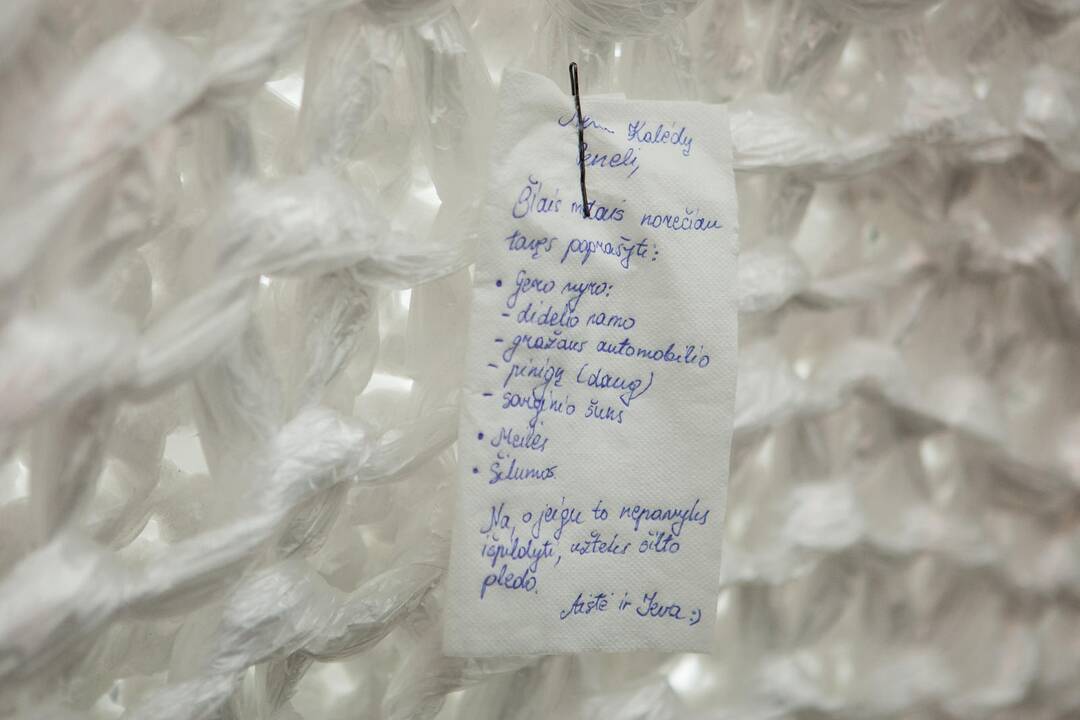 Kalėdų
Seneli,
Šiais metais norėčiau
tavęs paprašyti:
• Gero vyro:
- didelio namo
- gražaus automobilio
- pinigų (daug)
- sarginio šuns
• Meilės
• Šilumos
Na, o jeigu to nepavyks
išpildyti, užteks šilto
pledo.
Aistė ir Ieva :)